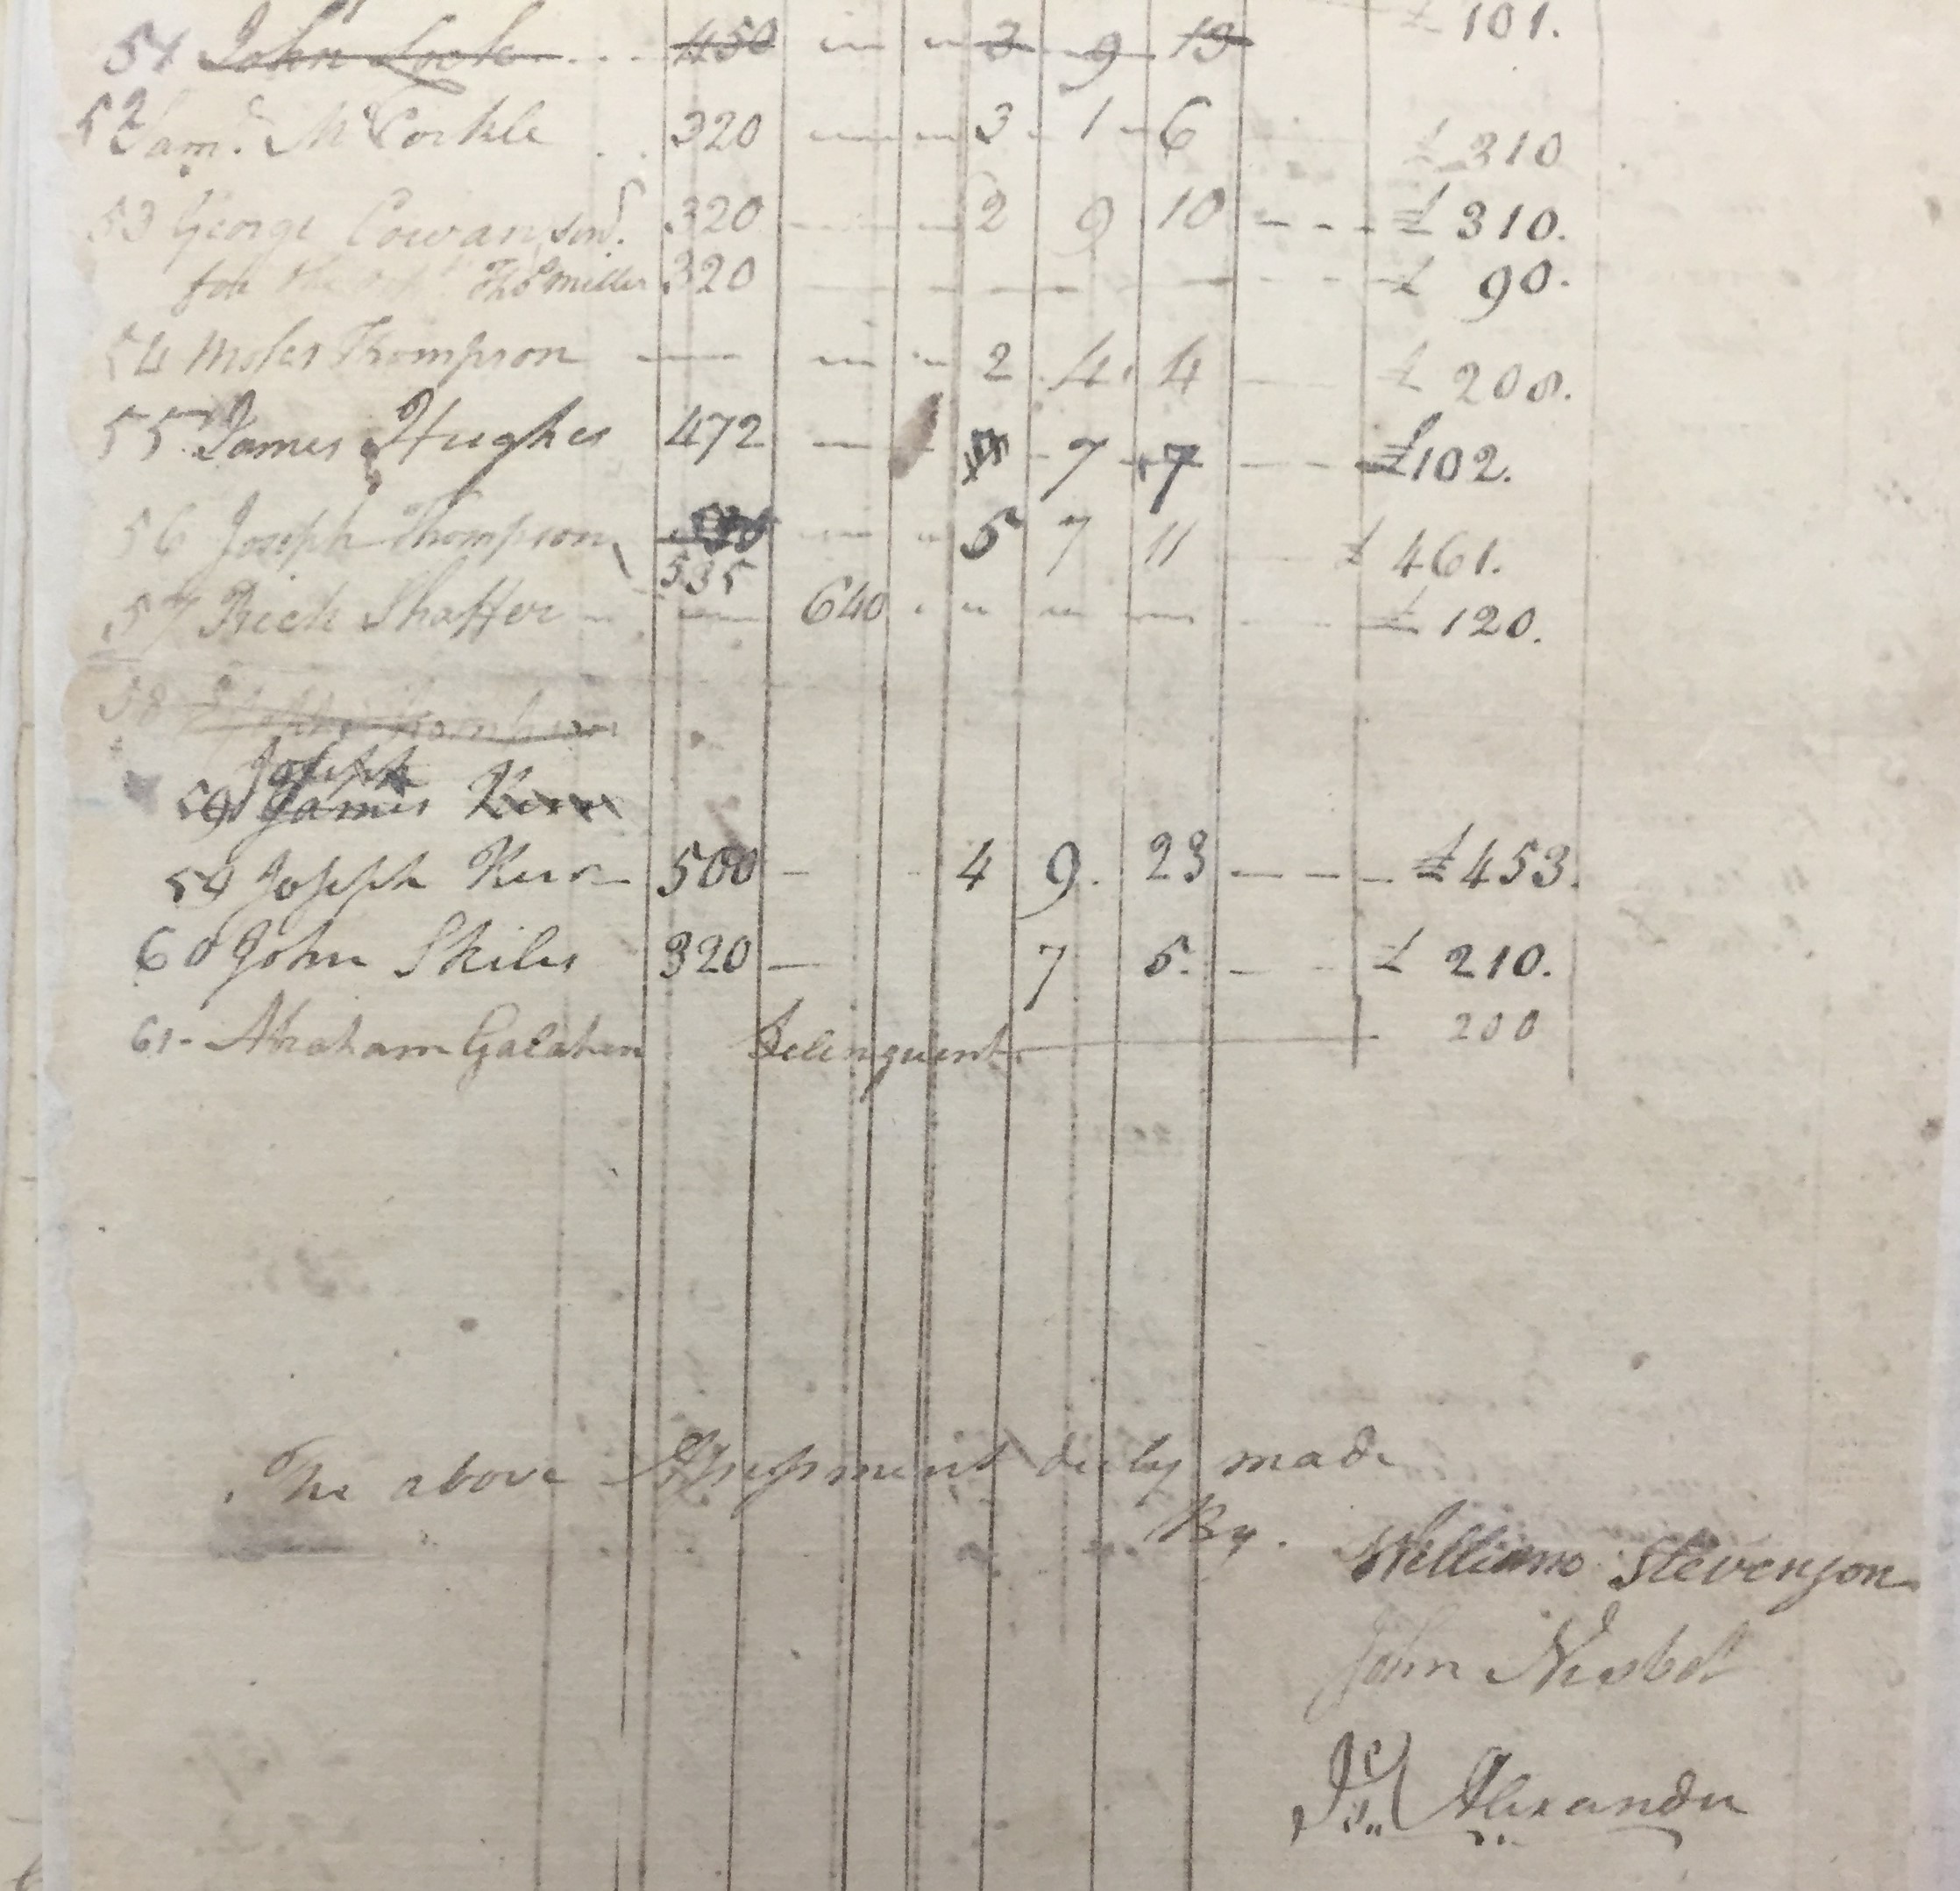 51 John Lock 450 3 9 13 £ 101.
52 Sam.l McCorkle 320 3 1 6 £ 310
53 George Cowan, sen.r 320 2 9 10 £ 310.
for the Thos Miller 320 £ 90.
54 Moses Thompson 2 4 4 £ 208.
55 James Hughes 472 7 7 £102.
56 Joseph Thompson 5 7 11 £ 461.
535
57 Fredk Shaffer 640 £ 120.
58 Thompson
Joseph
59 James Kerr
59 Joseph Kerr 500 4 9. 23 £453.
60 John Skiles 320 7 5. £ 210.
61- Abraham Galahan Delinquent 200
The above Assessment duly made
By.
William Stevenson
John Nesbet
Alexander